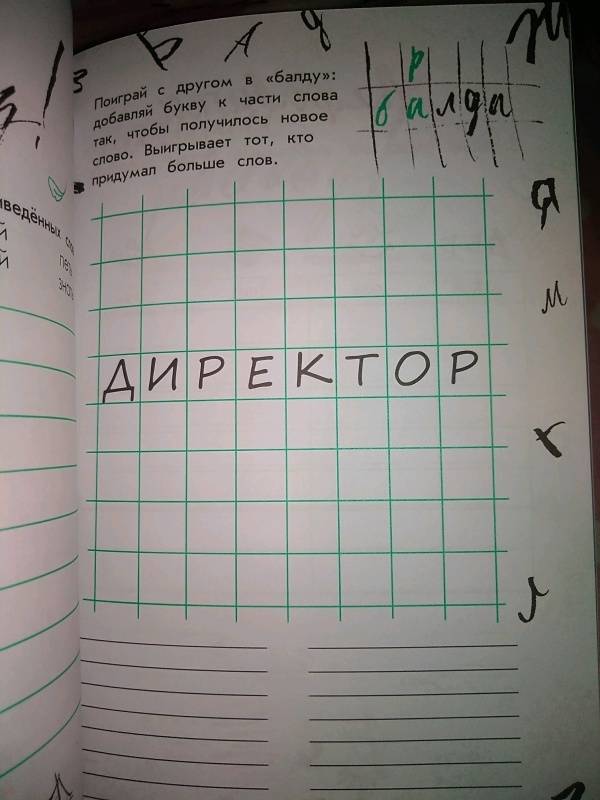 З Ь А д Ж
Поиграй с другом в «балду»:
добавляй букву к части слова
так, чтобы получилось новое
слово. Выигрывает тот, кто
придумал больше слов.
р
балда
ДИРЕКТОР
Я
м
х
й
й